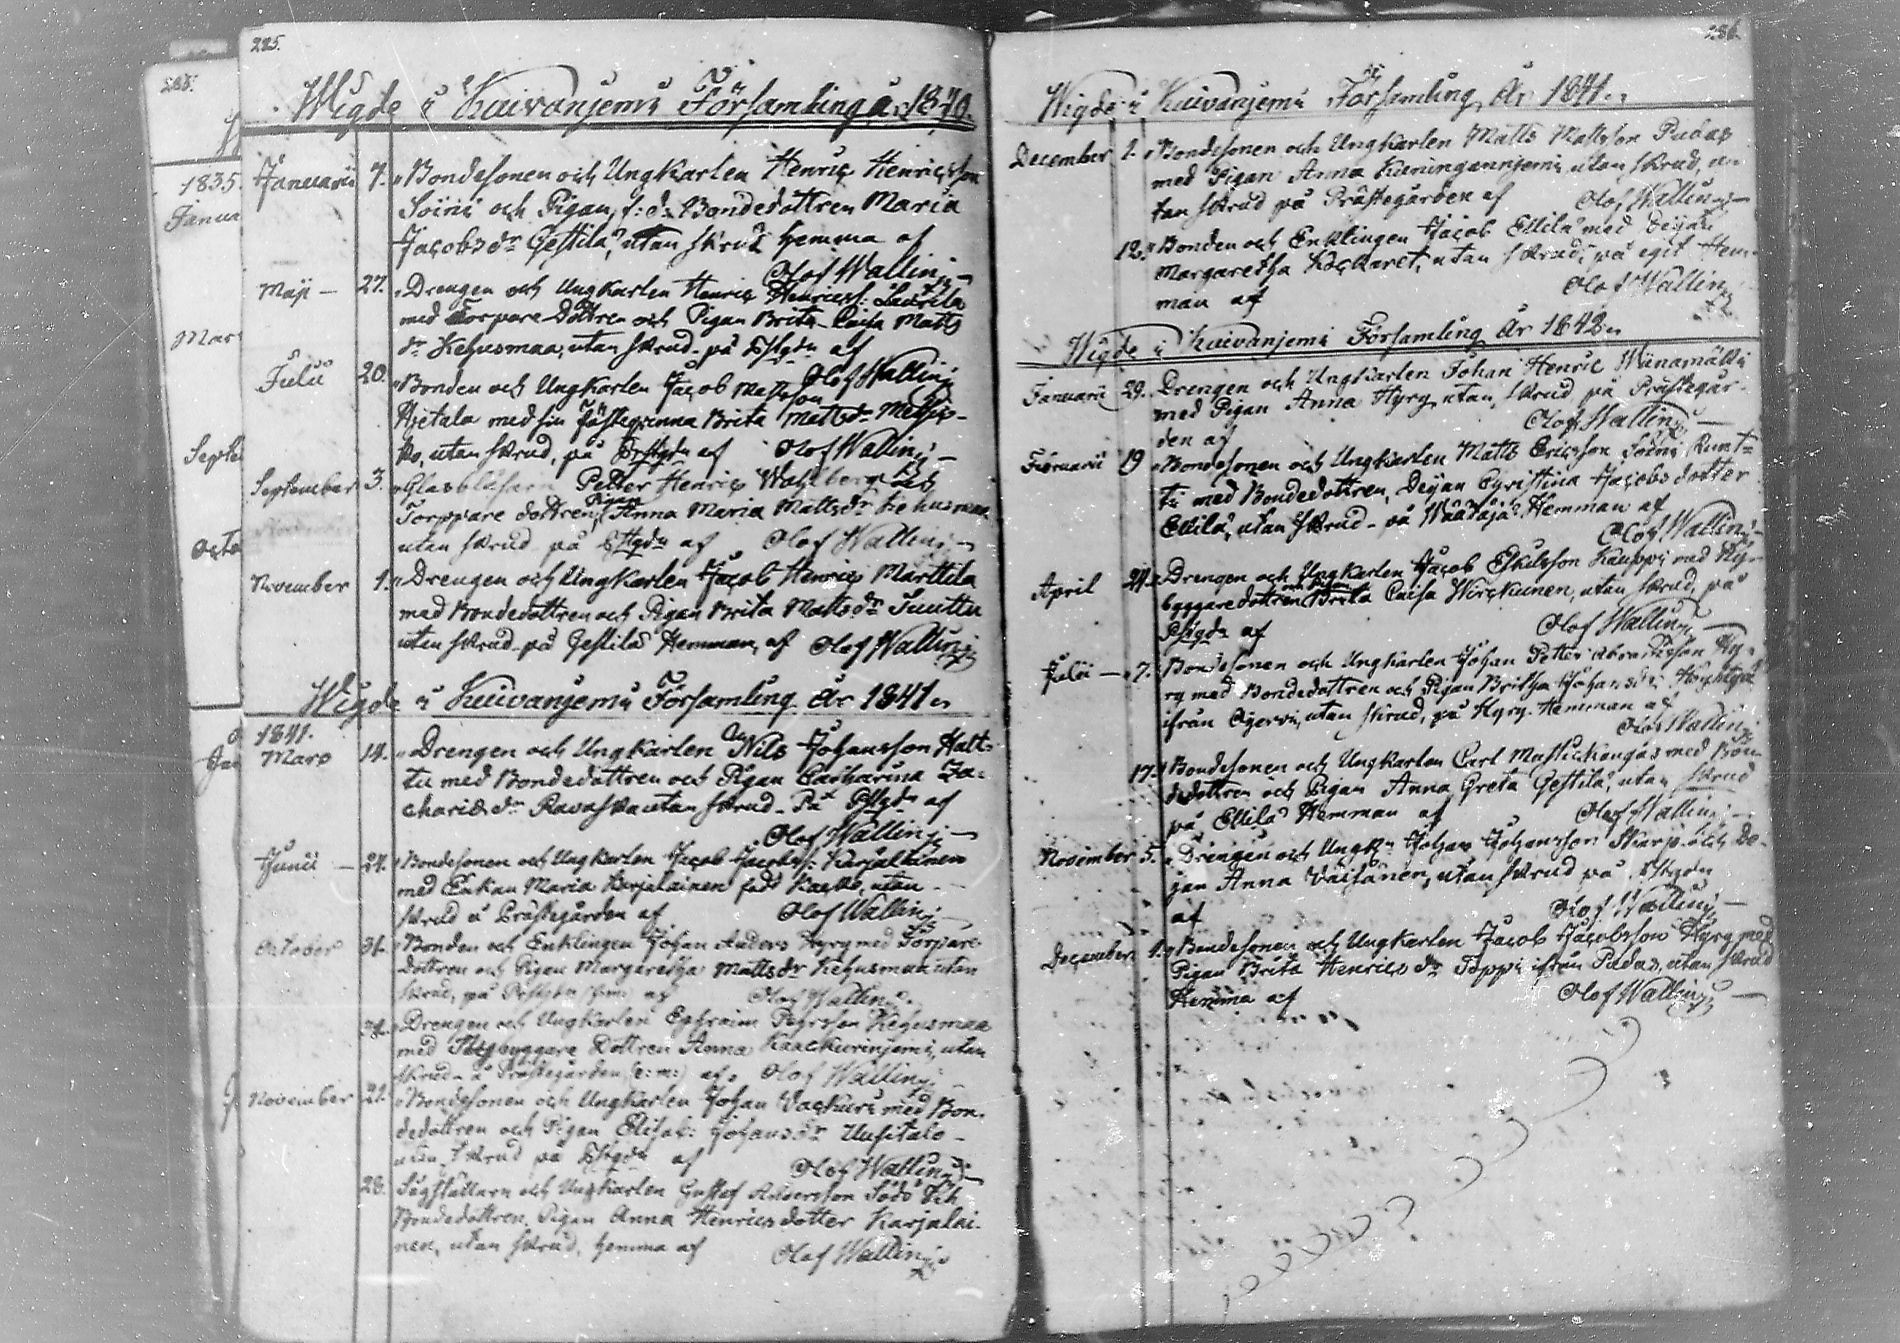 285.
1835.
Janua
Mar
Septe
Octo
225.
Wigde i Kuivaniemi Församling år 1840.
Januarii 7. Bondesonen och Ungkarlen Henric Henricsson
Soini och Pigan, f: d: Bondedottren Maria
Jacobsdr Gestilä, utan skrud hemma af
Olof Wallin
Maji — 27. Drengen och Ungkarlen Henric Henricss: Laurila
med Torpare Dottren och Pigan Brita Caisa Matts
dr Kehusmaa, utan skrud på af
Olof Wallin
Julii 20. Bonden och Ungkarlen Jacob Mattsson
Hietala med sin fästeqvinna Brita Mattsdr
ko, utan skrud, på af Olof Wallin
September 3. Glasblåsaren Petter Henric Wahlberg och
Torppare dottren, Pigan Anna Maria Mattsdr Kehusmaa
utan skrud på af Olof Wallin
November 1. Drengen och Ungkarlen Jacob Henric Marttila
med Bondedottren och Pigan Brita Mattsdr Juuttu
utan skrud på Gestilä Hemman, af Olof Wallin
Wigde i Kuivaniemi Församling år 1841.
1841.
Mars 14. Drengen och Ungkarlen Nils Johansson Hatt-
tu med Bondedottren och Pigan Catharina Za-
chariæ dr Ravaska utan skrud På af
Olof Wallin
Junii — 24. Bondesonen och Ungkarlen Jacob Jacobss: Karjalainen
med Enkan Maria Karjalainen född Kaakko, utan
skrud å Prästegården af Olof Wallin
October 31. Bonden och Enklingen Johan Anders Hyry med Torpare
Dottren och Pigan Margaretha Mattsdr Kehusmaa utan
skrud, på af Olof Wallin
31. Drengen och Ungkarlen Ephraim Pehrsson Kehusmaa
med Nybyggare Dottren Anna utan
skrud å Prästegården (e: m:) af Olof Wallin
November 21. Bondesonen och Ungkarlen Johan Vackuri med Bon-
dedottren och Pigan Elisab: Johansdr Uusitalo
utan skrud på af Olof Wallin
28. Sågställaren och Ungkarlen Gustaf Andersson Södö och
Bondedottren Pigan Anna Henricsdotter Karjalai-
nen, utan skrud, hemma af Olof Wallin
286.
Wigde i Kuivaniemi Församling År 1841.
December 1. Bondesonen och Ungkarlen Matts Mattsson Pudas
med Pigan Anna utan skrud, u-
tan skrud på Prästegården af Olof Wallin
12. Bonden och Enklingen Jacob Ellilä med Deijan
Margaretha utan skrud, på eget Hem-
man af Olof Wallin
Wigde i Kuivaniemi Församling År 1842.
Januarii 29. Drengen och Ungkarlen Johan Henric Wänämäki
med Pigan Anna Hyry utan skrud på Prästegår-
den af Olof Wallin
Februarii 19 Bondesonen och Ungkarlen Matts Ericsson Soini Runt-
ti med Bondedottren, Dejan Christina Jacobsdotter
Ellilä, utan skrud på Hemman af
Olof Wallin
April 24. Drengen och Ungkarlen Jacob Eskilsson Kauppi med Ny-
byggare dottren och Pigan Brita Caisa Wirckunen, utan skrud, på
af Olof Wallin
Julii — 7. Bondesonen och Ungkarlen Johan Petter Abrahamsson Hy-
ry med Bondedottren och Pigan Britha Johansdr
ifrån utan skrud, på Hyry Hemman af
Olof Wallin
17. Bondesonen och Ungkarlen Carl Mustickangas med Bon-
dedottren och Pigan Anna Greta Gestilä, utan skrud
på Ellilä Hemman af Olof Wallin
November 5. Drengen och Ungk: Johan Johansson Skarp och De-
jan Anna Väisänen, utan skrud på
af Olof Wallin
December 1. Bondesonen och Ungkarlen Jacob Jacobsson Hyry med
Pigan Brita Henricsdr Toppi ifrån Pudas, utan skrud
Hemma af Olof Wallin